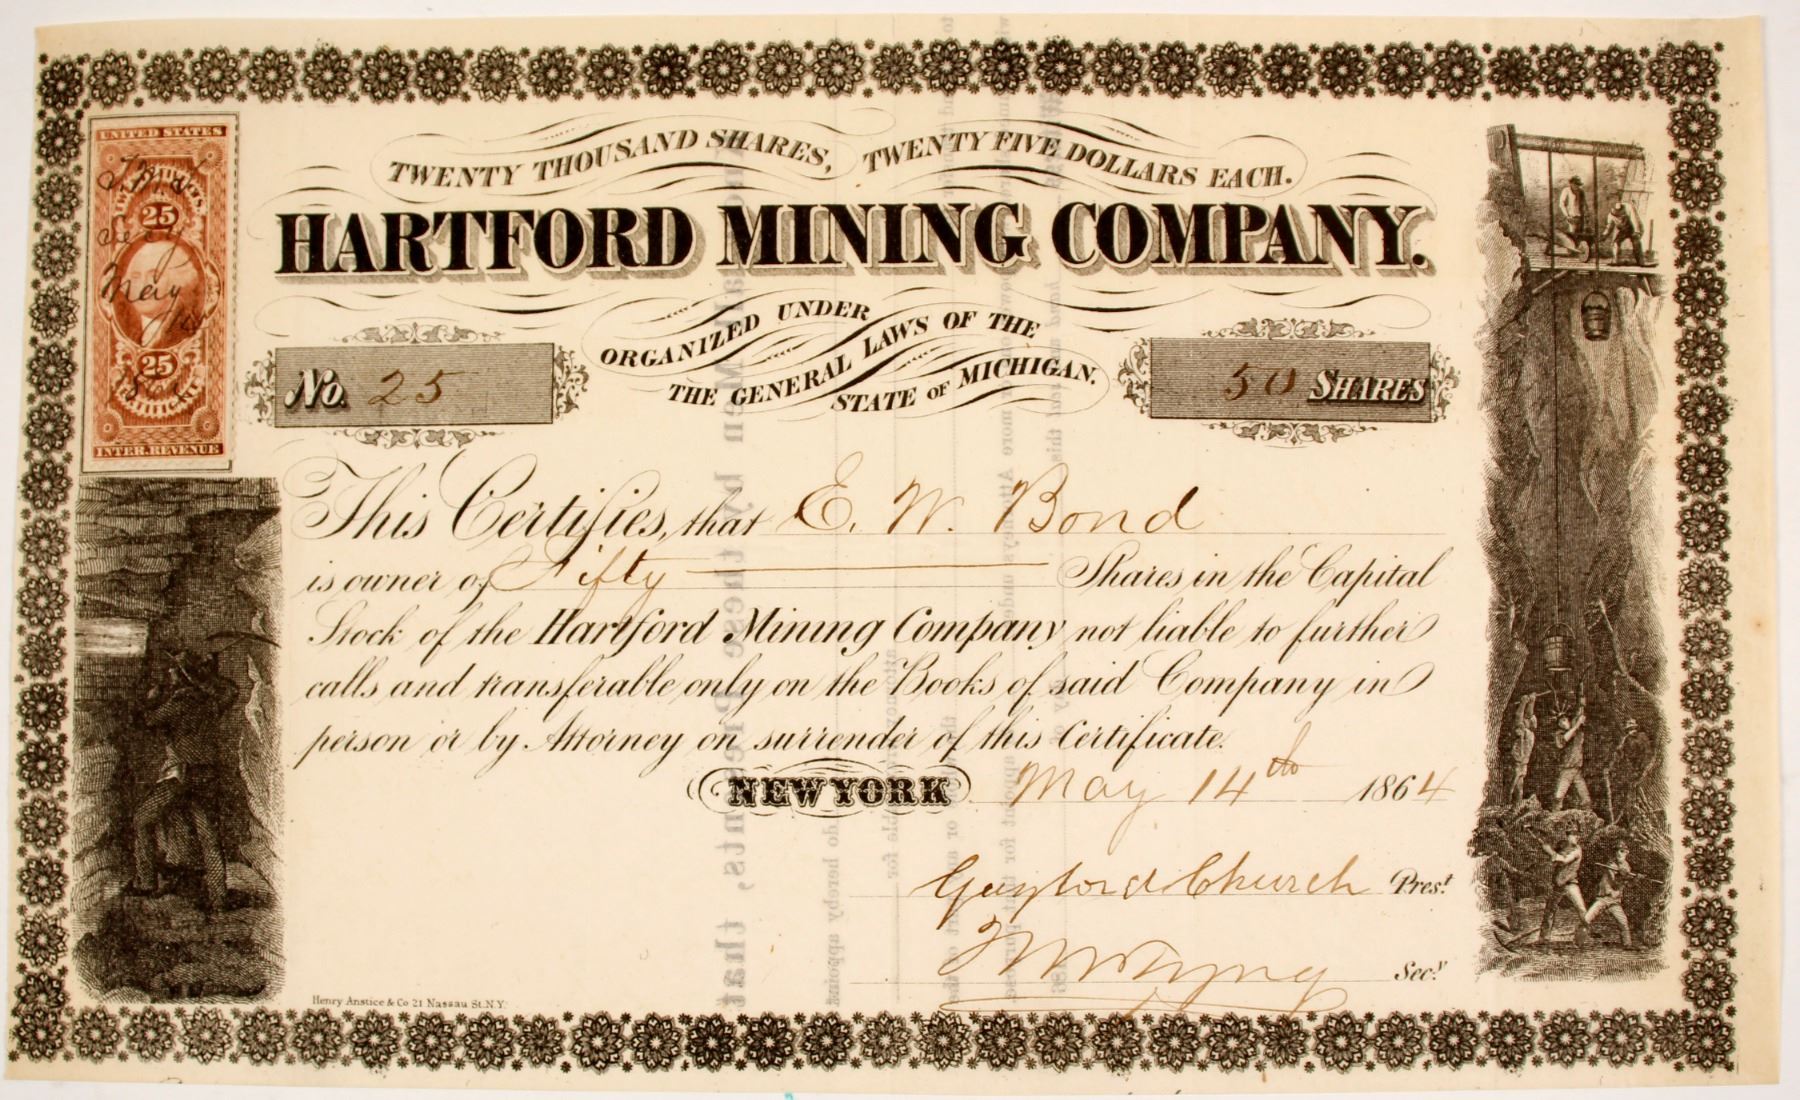 TWENTY THOUSAND SHARES, TWENTY FIVE DOLLARS EACH.
HARTFORD MINING COMPANY.
ORGANIZED UNDER
THE GENERAL LAWS OF THE
STATE OF MICHIGAN.
UNITED STATES
25
May
25
CERTIFICATE
INTER. REVENUE
No. 25
50 SHARES
This Certifies, that E. W. Bond
is owner of Fifty Shares in the Capital
Stock of the Hartford Mining Company not liable to further
calls and transferable only on the Books of said Company in
person or by Attorney on surrender of this Certificate.
NEW YORK May 14th 1864
Gaylord Church Prest.
Secy.
Henry Anstice & Co 21 Nassau St. N.Y.